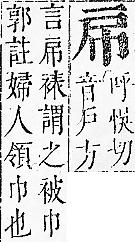 帍
呼悞切
音戶方
言帍裱謂之被巾
郭註婦人領巾也